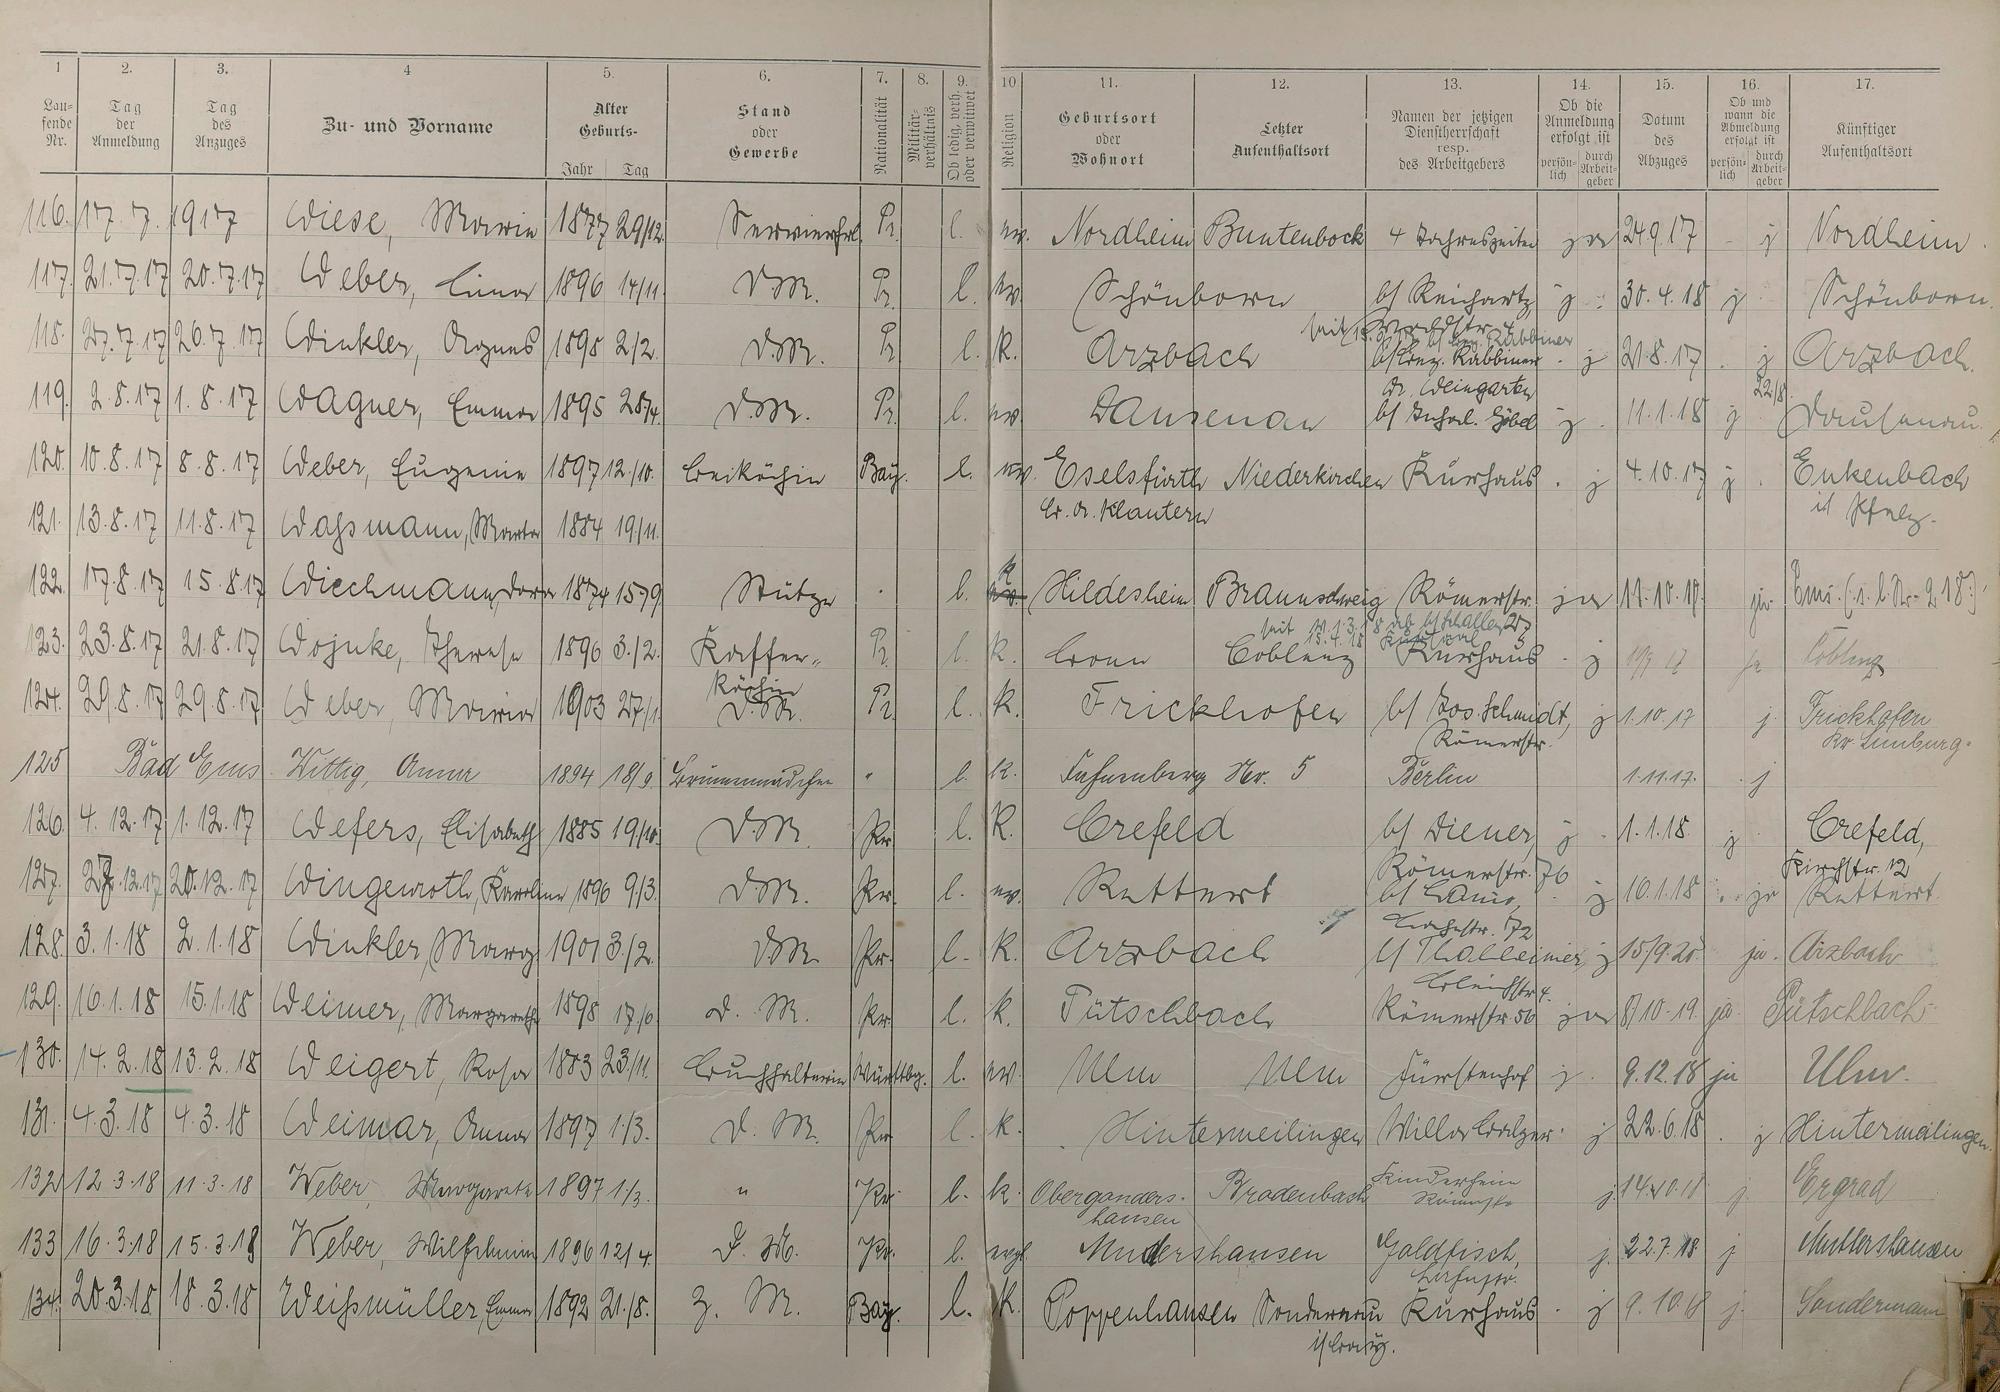 1 2. 3. 4 5. 6. 7. 8. 9. 10 11. 12. 13. 14. 15. 16. 17.
Lau-fende Nr. Tag der Anmeldung Tag des Anzuges Zu- und Vorname Alter Geburts- Jahr Tag Stand oder Gewerbe Nationalität Militär-verhältnis Ob ledig, verh. oder verwitwet Religion Geburtsort oder Wohnort Letzter Aufenthaltsort Namen der jetzigen Dienstherrschaft resp. des Arbeitgebers Ob die Anmeldung erfolgt ist persön-lich durch Arbeit-geber Datum des Abzuges Ob und wann die Abmeldung erfolgt ist persön-lich durch Arbeit-geber Künftiger Aufenthaltsort
116. 17. 7. 1917 Wiese, Marie 1877 29/12. Servierfrl. Pr. l. ev. Nordheim Buntenbock 4 Jahreszeiten ja 24.9.17 j Nordheim.
117. 21.7.17 20.7.17 Weber, Lina 1896 14/11. D.M. Pr. l. ev. Schönborn b/ Reichartz, j 30.4.18 j Schönborn.
118. 27.7.17 26.7.17 Winkler, Agnes 1898 2/2. D.M. Pr l. k. Arzbach b/ Rabbiner j 21.8.17 j Arzbach.
Dr. Weingarten 22/8.
119. 2.8.17 1.8.17 Wagner, Emma 1895 28/4. D.M. Pr. l. ev. Dausenau b/ Göbel j 11.1.18 j Dausenau.
120. 10.8.17 8.8.17 Weber, Eugenie 1897 12./10. Beiköchin Bay. l. ev. Eselsfürth Niederkirchen Kurhaus j 4.10.17 j Enkenbach
B. A. Klautern i/ Pfalz.
121. 13.8.17 11.8.17 Waßmann, Marta 1884 19./11.
k
122. 17.8.17 15.8.17 Wiechmann, Dora 1874 15/9 Stütze l. ev. Hildesheim Braunschweig Römerstr. ja 11.10.17. ja. Ems. (s. l. Nr. 218.)
123. 23.8.17 21.8.17 Wojnke, Therese 1896 3./2. Kaffee- Pr. l. k. Coblenz Kurhaus j 17 ja Coblenz
köchin
124. 29.8.17 29.8.17 Weber, Maria 1903 27/1. D.M. Pr l. k. Frickhofen b/ Jos. Schmidt, j 1.10.17 j. Frickhofen
Römerstr. Kr. Limburg.
125 Bad Ems Wittig, Anna 1894 18/9 Brunnenmädchen " l. k. Nr. 5 Berlin 1.11.17. j
126. 4.12.17 1.12.17 Wefers, Elisabeth 1885 19/10. D.M. Pr. l. K. Crefeld b/ Diener, j 1.1.18. j Crefeld,
Römerstr. 76 Kirchstr. 12
127. 27.12.17 20.12.17 Wingenroth, Karoline 1896 9./3. D.M. Pr. l. ev. Rettert b/ j 10.1.18 ja Rettert.
72
128. 3.1.18 2.1.18 Winkler, Marg 1901 3./2. D.M. Pr. l. k. Arzbach b/ Thalheimer, j 15/9.20 ja. Arzbach
Bleichstr. 4.
129. 16.1.18 15.1.18 Weimer, Margarethe 1898 17./6. D. M. Pr. l. k. Pütschbach Römerstr 56 ja 8/10.19. ja. Pütschbach
130. 14.2.18 13.2.18 Weigert, Rosa 1883 23/11. Buchhalterin Württbg. l. ev. Ulm Ulm Fürstenhof j. 9.12.18 ja Ulm.
131. 4.3.18 4.3.18 Weimar, Anna 1897 1./3. D. M. Pr. l. k. Hintermeilingen Villa Balzer. j 22.6.18 j Hintermeilingen.
132 12.3.18 11.3.18 Weber, Margarete 1897 1./3. " Pr. l. k. Oberganders- Brodenbach Kinderheim j 14.10.18 j.
hausen
133 16.3.18 15.3.18 Weber, Wilhelmine 1896 12/4. D. M. Pr. l. evgl. Mudershausen Goldfisch, j. 22.7.18 j Mudershausen
134. 20.3.18 18.3.18 Weißmüller, Emma 1892 21./8. Z. M. Bay. l. K. Poppenhausen Sondernau Kurhaus j 9.10.18 j.
i/ Bay.